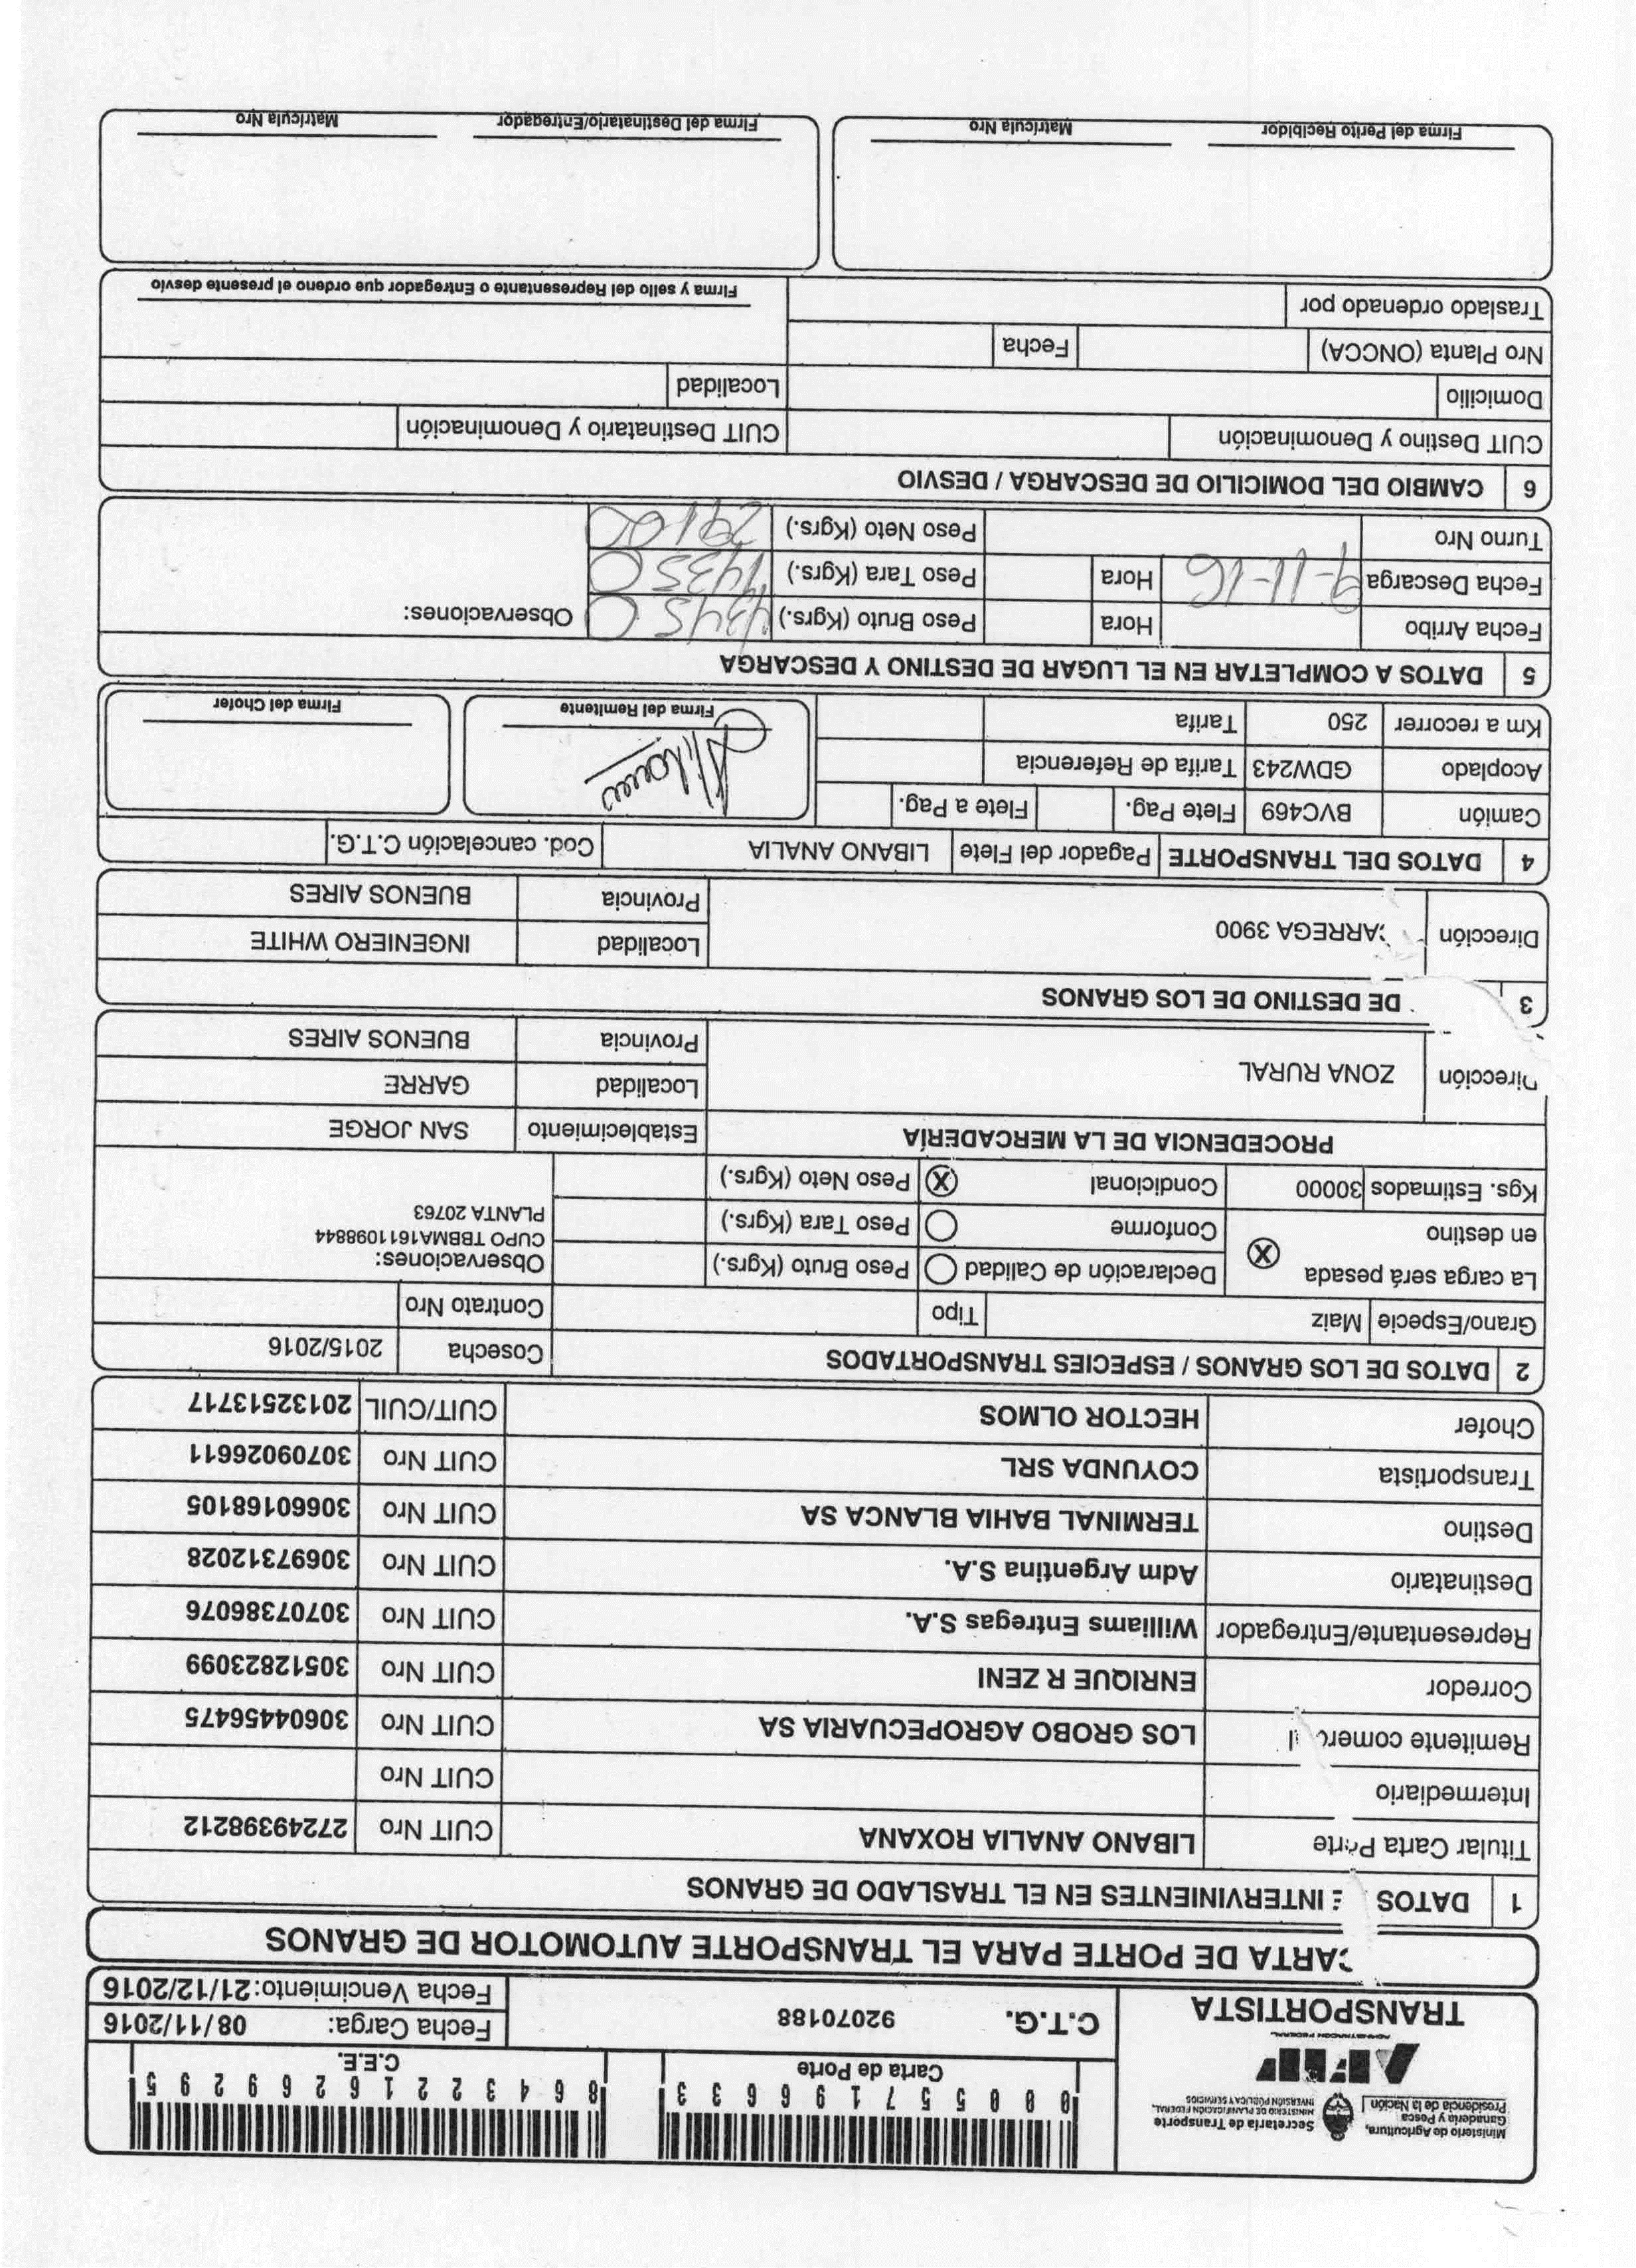 Ministerio de Agricultura,
Ganadería y Pesca
Presidencia de la Nación
Secretaría de Transporte
MINISTERIO DE PLANIFICACIÓN FEDERAL,
INVERSIÓN PÚBLICA Y SERVICIOS
AFIP
ADMINISTRACION FEDERAL
TRANSPORTISTA
Carta de Porte
C.E.E.
C.T.G. 92070188
Fecha Carga: 08/11/2016
Fecha Vencimiento: 21/12/2016
ARTA DE PORTE PARA EL TRANSPORTE AUTOMOTOR DE GRANOS
1 DATOS E INTERVINIENTES EN EL TRASLADO DE GRANOS
Titular Carta Porte LIBANO ANALIA ROXANA CUIT Nro 27249398212
Intermediario CUIT Nro
Remitente comerc l LOS GROBO AGROPECUARIA SA CUIT Nro 30604456475
Corredor ENRIQUE R ZENI CUIT Nro 30512823099
Representante/Entregador Williams Entregas S.A. CUIT Nro 30707386076
Destinatario Adm Argentina S.A. CUIT Nro 30697312028
Destino TERMINAL BAHIA BLANCA SA CUIT Nro 30660168105
Transportista COYUNDA SRL CUIT Nro 30709026611
Chofer HECTOR OLMOS CUIT/CUIL 20132513717
2 DATOS DE LOS GRANOS / ESPECIES TRANSPORTADOS Cosecha 2015/2016
Grano/Especie Maiz Tipo Contrato Nro
La carga será pesada en destino X Declaración de Calidad Peso Bruto (Kgrs.) Observaciones:
Conforme Peso Tara (Kgrs.) CUPO TBBMA1611098844
PLANTA 20763
Kgs. Estimados 30000 Condicional X Peso Neto (Kgrs.)
PROCEDENCIA DE LA MERCADERÍA Establecimiento SAN JORGE
Dirección ZONA RURAL Localidad GARRE
Provincia BUENOS AIRES
3 DE DESTINO DE LOS GRANOS
Dirección CARREGA 3900 Localidad INGENIERO WHITE
Provincia BUENOS AIRES
4 DATOS DEL TRANSPORTE Pagador del Flete LIBANO ANALIA Cod. cancelación C.T.G.
Camión BVC469 Flete Pag. Flete a Pag.
Acoplado GDW243 Tarifa de Referencia
Km a recorrer 250 Tarifa
Firma del Remitente Firma del Chofer
5 DATOS A COMPLETAR EN EL LUGAR DE DESTINO Y DESCARGA
Fecha Arribo Hora Peso Bruto (Kgrs.) 43450 Observaciones:
Fecha Descarga 9-11-16 Hora Peso Tara (Kgrs.) 14350
Turno Nro Peso Neto (Kgrs.) 29100
6 CAMBIO DEL DOMICILIO DE DESCARGA / DESVIO
CUIT Destino y Denominación CUIT Destinatario y Denominación
Domicilio Localidad
Nro Planta (ONCCA) Fecha
Traslado ordenado por
Firma y sello del Representante o Entregador que ordeno el presente desvío
Firma del Perito Recibidor Matrícula Nro Firma del Destinatario/Entregador Matrícula Nro